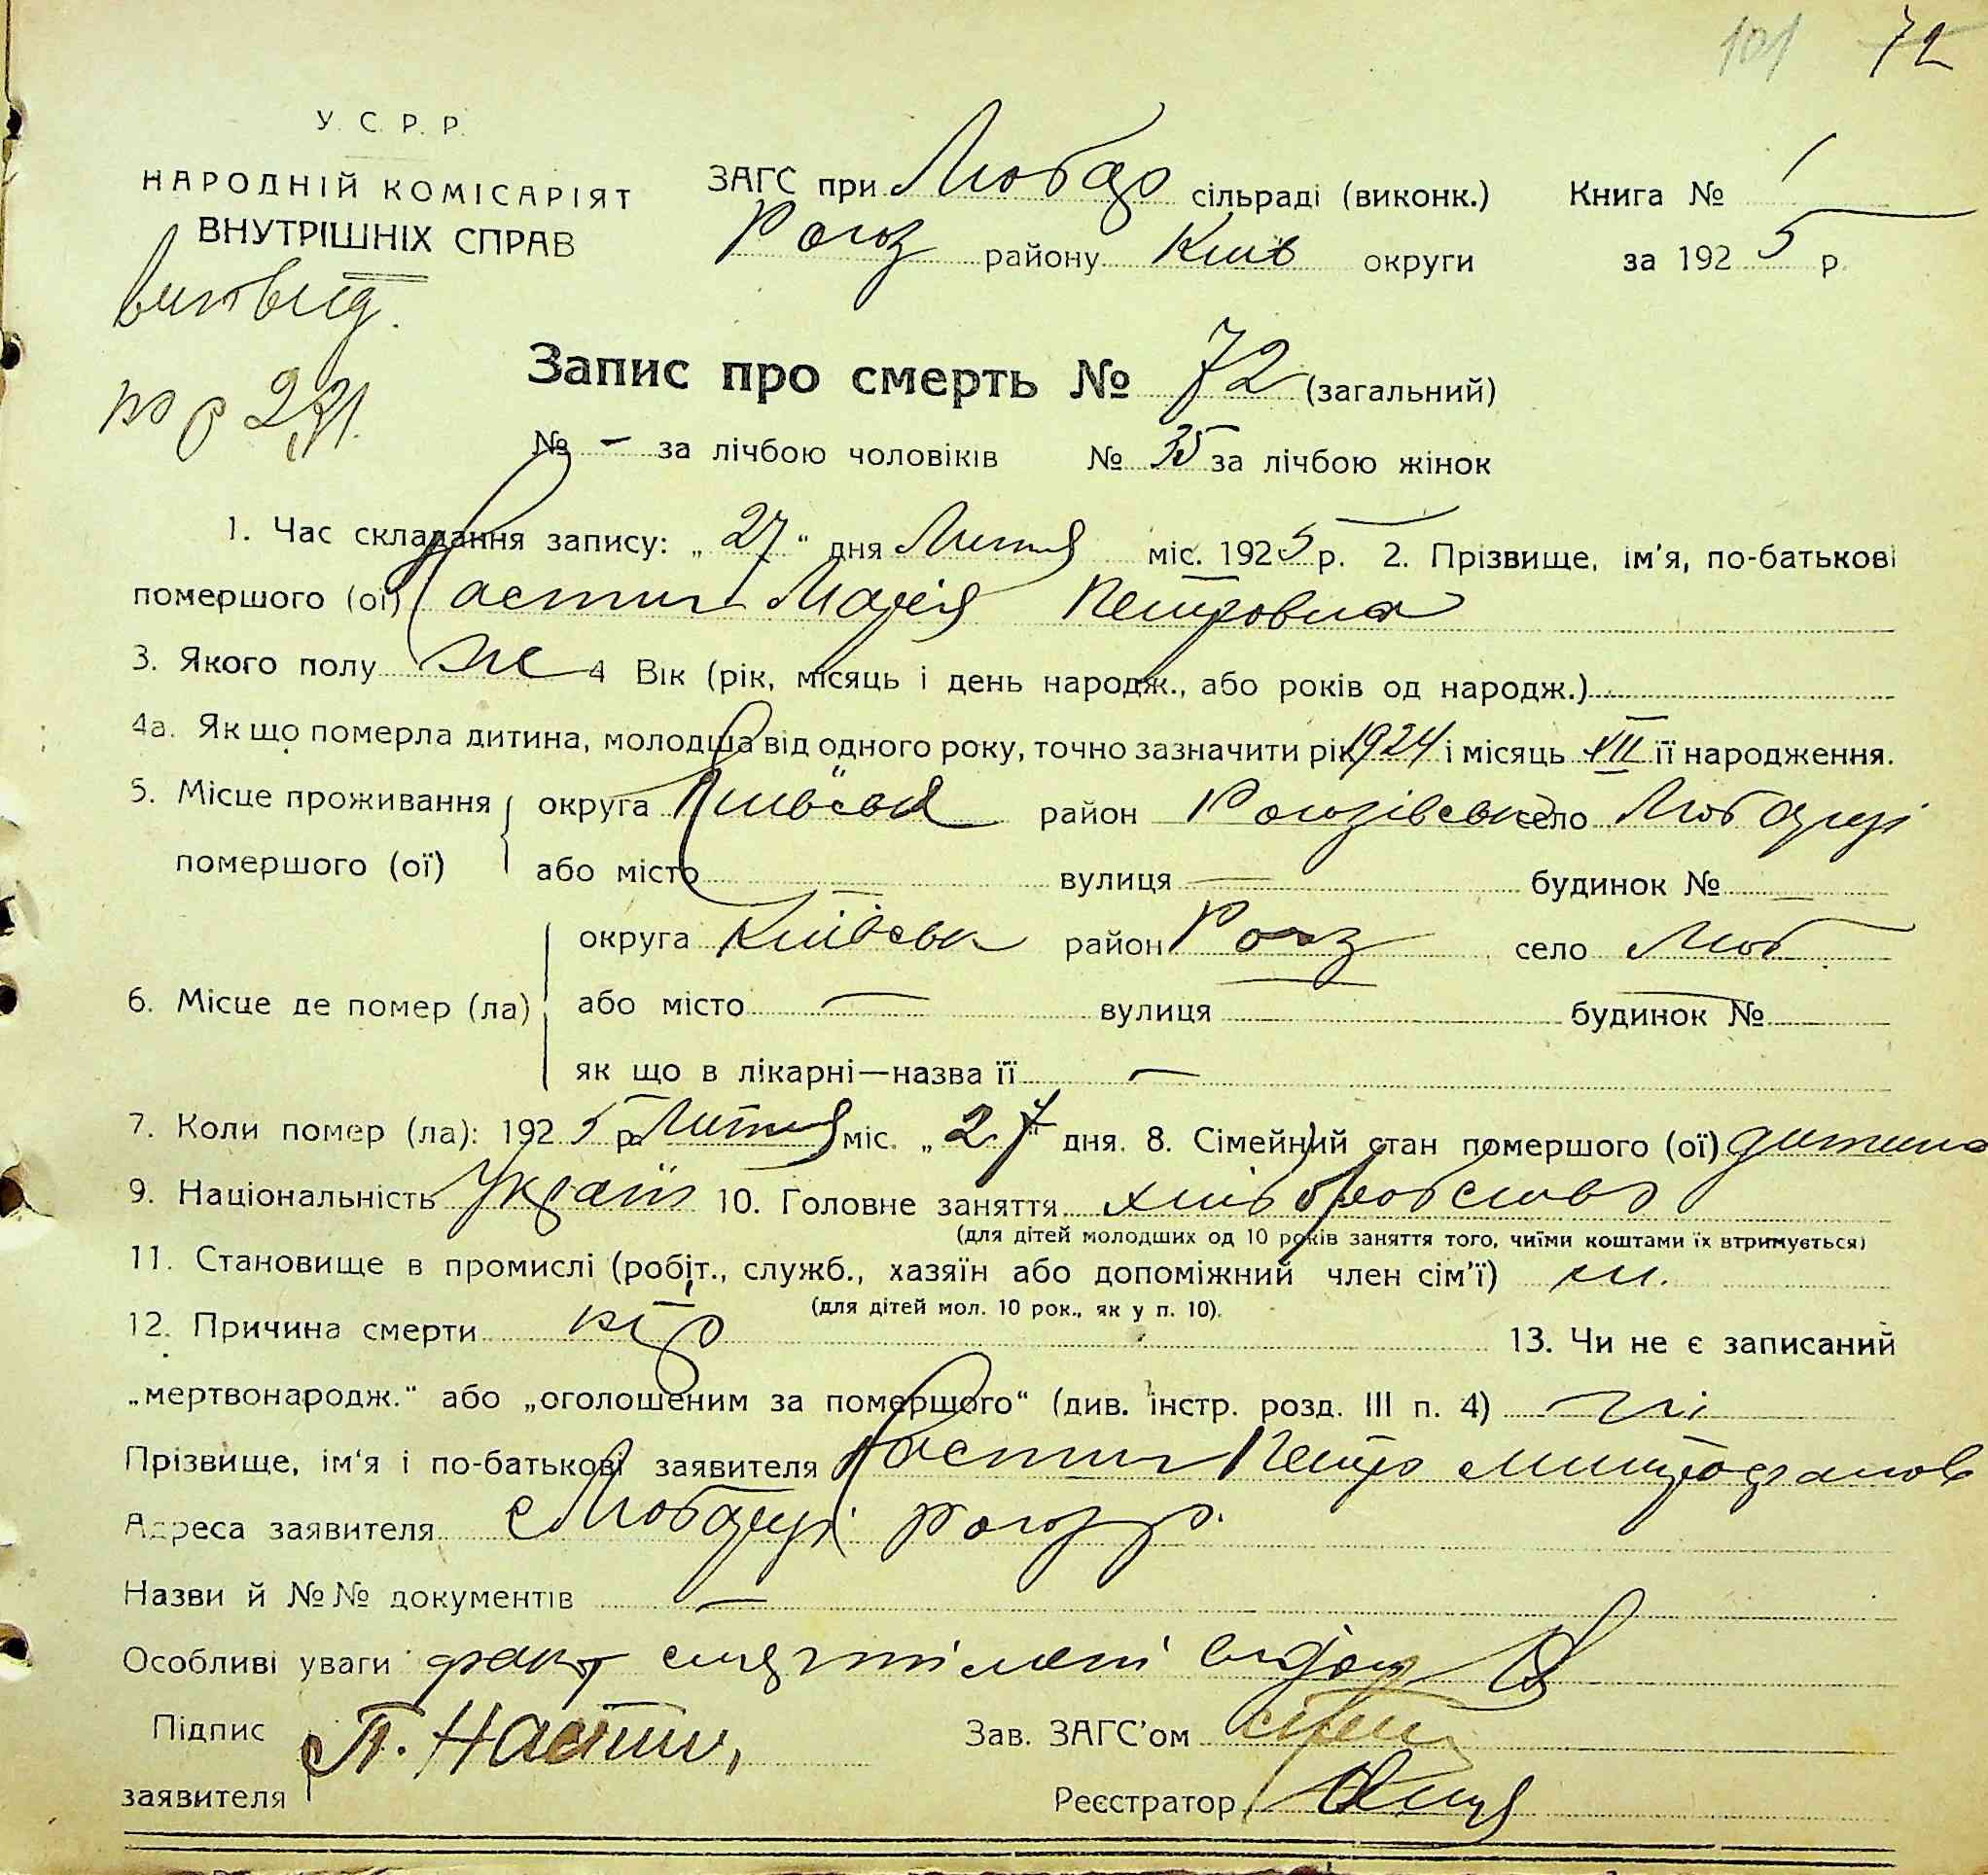 101 72
У. С. Р. Р.
НАРОДНІЙ КОМІСАРІЯТ
ВНУТРІШНІХ СПРАВ
ЗАГС при Любар сільраді (виконк.) Книга № 1
Рогоз району Київ округи за 1925 р.
Запис про смерть № 72 (загальний)
№ — за лічбою чоловіків № 35 за лічбою жінок
1. Час складання запису: „27“ дня Лютня міс. 1925 р. 2. Прізвище, ім'я, по-батькові
помершого (ої) Настич Марія Петровна
3. Якого полу ж 4 Вік (рік, місяць і день народж., або років од народж.)
4а. Як що померла дитина, молодша від одного року, точно зазначити рік 1924 і місяць VII її народження.
5. Місце проживання помершого (ої) округа Київськ район Рогозівськ село Любарці
або місто вулиця — будинок № —
6. Місце де помер (ла) округа Київськ район Рогоз село Люб
або місто — вулиця — будинок № —
як що в лікарні—назва її —
7. Коли помер (ла): 1925 р. Лютня міс. „27“ дня. 8. Сімейний стан помершого (ої) дитина
9. Національність Україн 10. Головне заняття хліборобство
(для дітей молодших од 10 років заняття того, чиїми коштами їх втримується)
11. Становище в промислі (робіт., служб., хазяїн або допоміжний член сім'ї)
(для дітей мол. 10 рок., як у п. 10).
12. Причина смерти кір 13. Чи не є записаний
„мертвонародж.“ або „оголошеним за помершого“ (див. інстр. розд. III п. 4) ні
Прізвище, ім'я і по-батькові заявителя Настич Петро Митрофанов
Адреса заявителя с Любарці Рогоз р.
Назви й №№ документів —
Особливі уваги факт смерти
Підпис заявителя П. Настич
Зав. ЗАГС'ом
Реєстратор